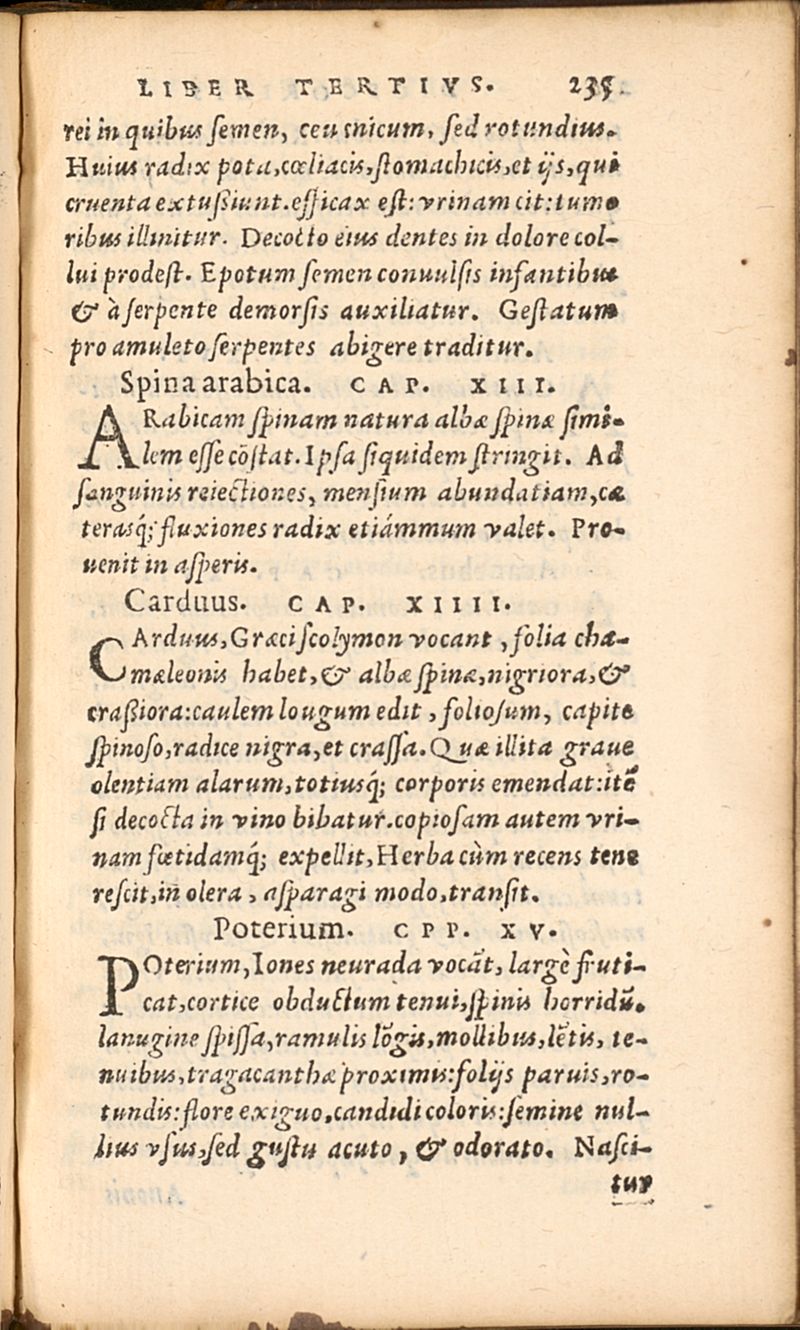 LIBER TERTIVS. 235.
rei in quibus ſemen, ceu cnicum, ſed rotundius.
Huius radix pota, cœliacis, ſtomachicis, et ijs, qui
cruenta extußiunt. efficax eſt: vrinam cit: tumo
ribus illinitur. Decocto eius dentes in dolore col-
lui prodeſt. Epotum ſemen conuulſis infantibus
& à ſerpente demorſis auxiliatur. Geſtatum
pro amuleto ſerpentes abigere traditur.
Spina arabica. CAP. XIII.
ARabicam ſpinam natura albæ ſpinæ ſimi-
lem eſſe cōſtat. Ipſa ſiquidem ſtringit. Ad
ſanguinis reiectiones, menſium abundatiam, cæ
terasq́; fluxiones radix etiámmum valet. Pro-
uenit in aſperis.
Carduus. CAP. XIIII.
CArduus, Græci ſcolymon vocant, folia cha-
mæleonis habet, & albæ ſpinæ, nigriora, &
craßiora: caulem lougum edit, folioſum, capite
ſpinoſo, radice nigra, et craſſa. Quæ illita graue
olentiam alarum, totiusq́; corporis emendat: itē
ſi decocta in vino bibatur. copioſam autem vri-
nam fœtidamq́; expellit, Herba cùm recens tene
reſcit, in olera, aſparagi modo, tranſit.
Poterium. CPP. XV.
POterium, Iones neurada vocāt, largè fruti-
cat, cortice obductum tenui, ſpinis horridū.
lanugine ſpiſſa, ramulis lōgis, mollibus, lētis, te-
nuibus, tragacanthæ proximis: folijs paruis, ro-
tundis: flore exiguo, candidi coloris: ſemine nul-
lius vſus, ſed guſtu acuto, & odorato. Naſci-
tur